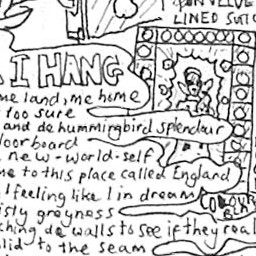 LINED SUITC
I HANG
me land, me home
too sure
and de hummingbird splendour
loorboard
new-world-self
me to this place called England
I feeling like I in dream
isty greyness
ching de walls to see if they real
lid to the seam